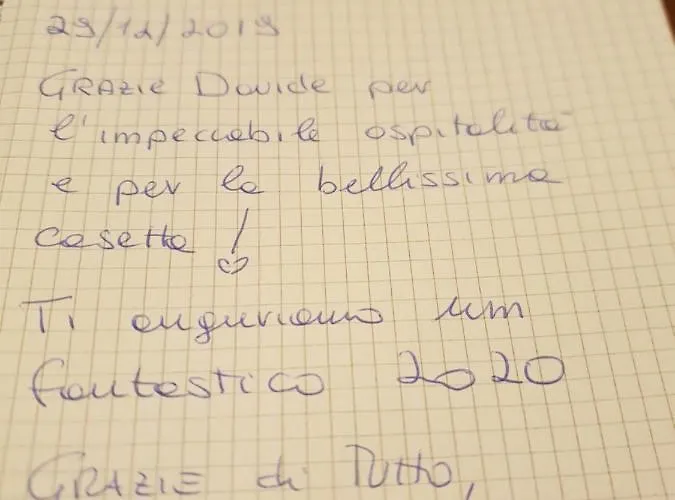 29/12/2019
GRAZIE Davide per
l'impeccabile ospitalità
e per la bellissima
casetta !
Ti auguriamo um
fantastico 2020
GRAZIE di Tutto,